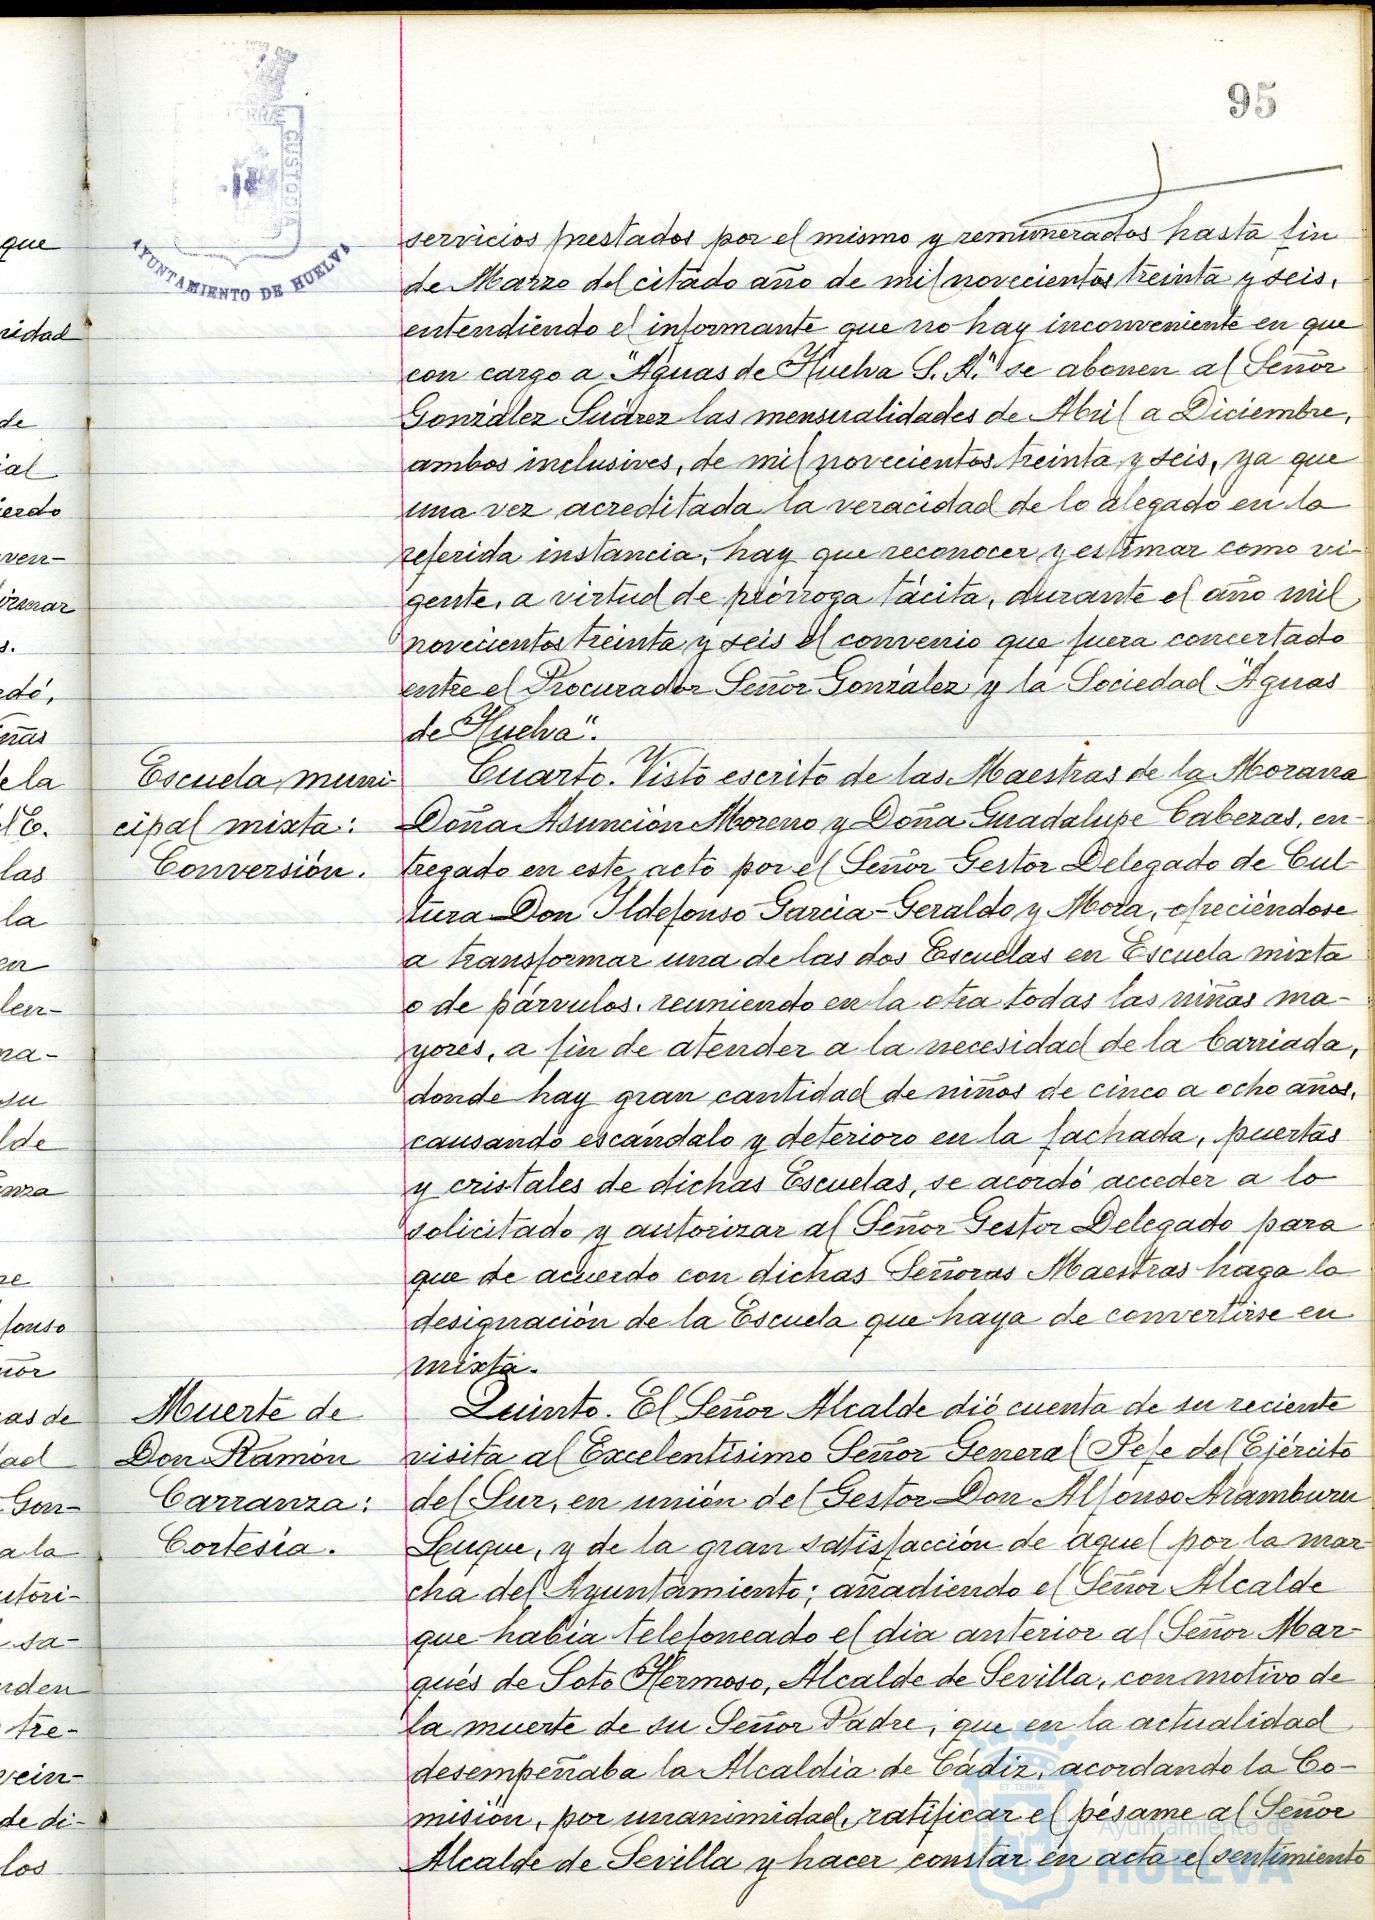 95
TERRÆ
CUSTODIA
AYUNTAMIENTO DE HUELVA
servicios prestados por el mismo y remunerados hasta fin
de Marzo del citado año de mil novecientos treinta y seis,
entendiendo el informante que no hay inconveniente en que
con cargo a "Aguas de Huelva S. A." se abonen al Señor
González Suárez las mensualidades de Abril a Diciembre,
ambos inclusives, de mil novecientos treinta y seis, ya que
una vez acreditada la veracidad de lo alegado en la
referida instancia, hay que reconocer y estimar como vi-
gente, a virtud de prórroga tácita, durante el año mil
novecientos treinta y seis el convenio que fuera concertado
entre el Procurador Señor González y la Sociedad "Aguas
de Huelva".
Escuela muni
cipal mixta:
Conversión.
Cuarto. Visto escrito de las Maestras de la Morana
Doña Asunción Moreno y Doña Guadalupe Cabezas, en-
tregado en este acto por el Señor Gestor Delegado de Cul-
tura Don Ildefonso Garcia-Geraldo y Mora, ofreciéndose
a transformar una de las dos Escuelas en Escuela mixta
o de párvulos, reuniendo en la otra todas las niñas ma-
yores, a fin de atender a la necesidad de la barriada,
donde hay gran cantidad de niños de cinco a ocho años,
causando escándalo y deterioro en la fachada, puertas
y cristales de dichas Escuelas, se acordó acceder a lo
solicitado y autorizar al Señor Gestor Delegado para
que de acuerdo con dichas Señoras Maestras haga la
designación de la Escuela que haya de convertirse en
mixta.
Muerte de
Don Ramón
Carranza:
Cortesía.
Quinto. El Señor Alcalde dió cuenta de su reciente
visita al Excelentísimo Señor General Jefe del Ejército
del Sur, en unión del Gestor Don Alfonso Aramburu
Luque, y de la gran satisfacción de aquel por la mar-
cha del Ayuntamiento; añadiendo el Señor Alcalde
que había telefoneado el dia anterior al Señor Mar-
qués de Soto Hermoso, Alcalde de Sevilla, con motivo de
la muerte de su Señor Padre, que en la actualidad
desempeñaba la Alcaldia de Cádiz, acordando la Co-
misión, por unanimidad, ratificar el pésame al Señor
Alcalde de Sevilla y hacer constar en acta el sentimiento
Ayuntamiento de
HUELVA